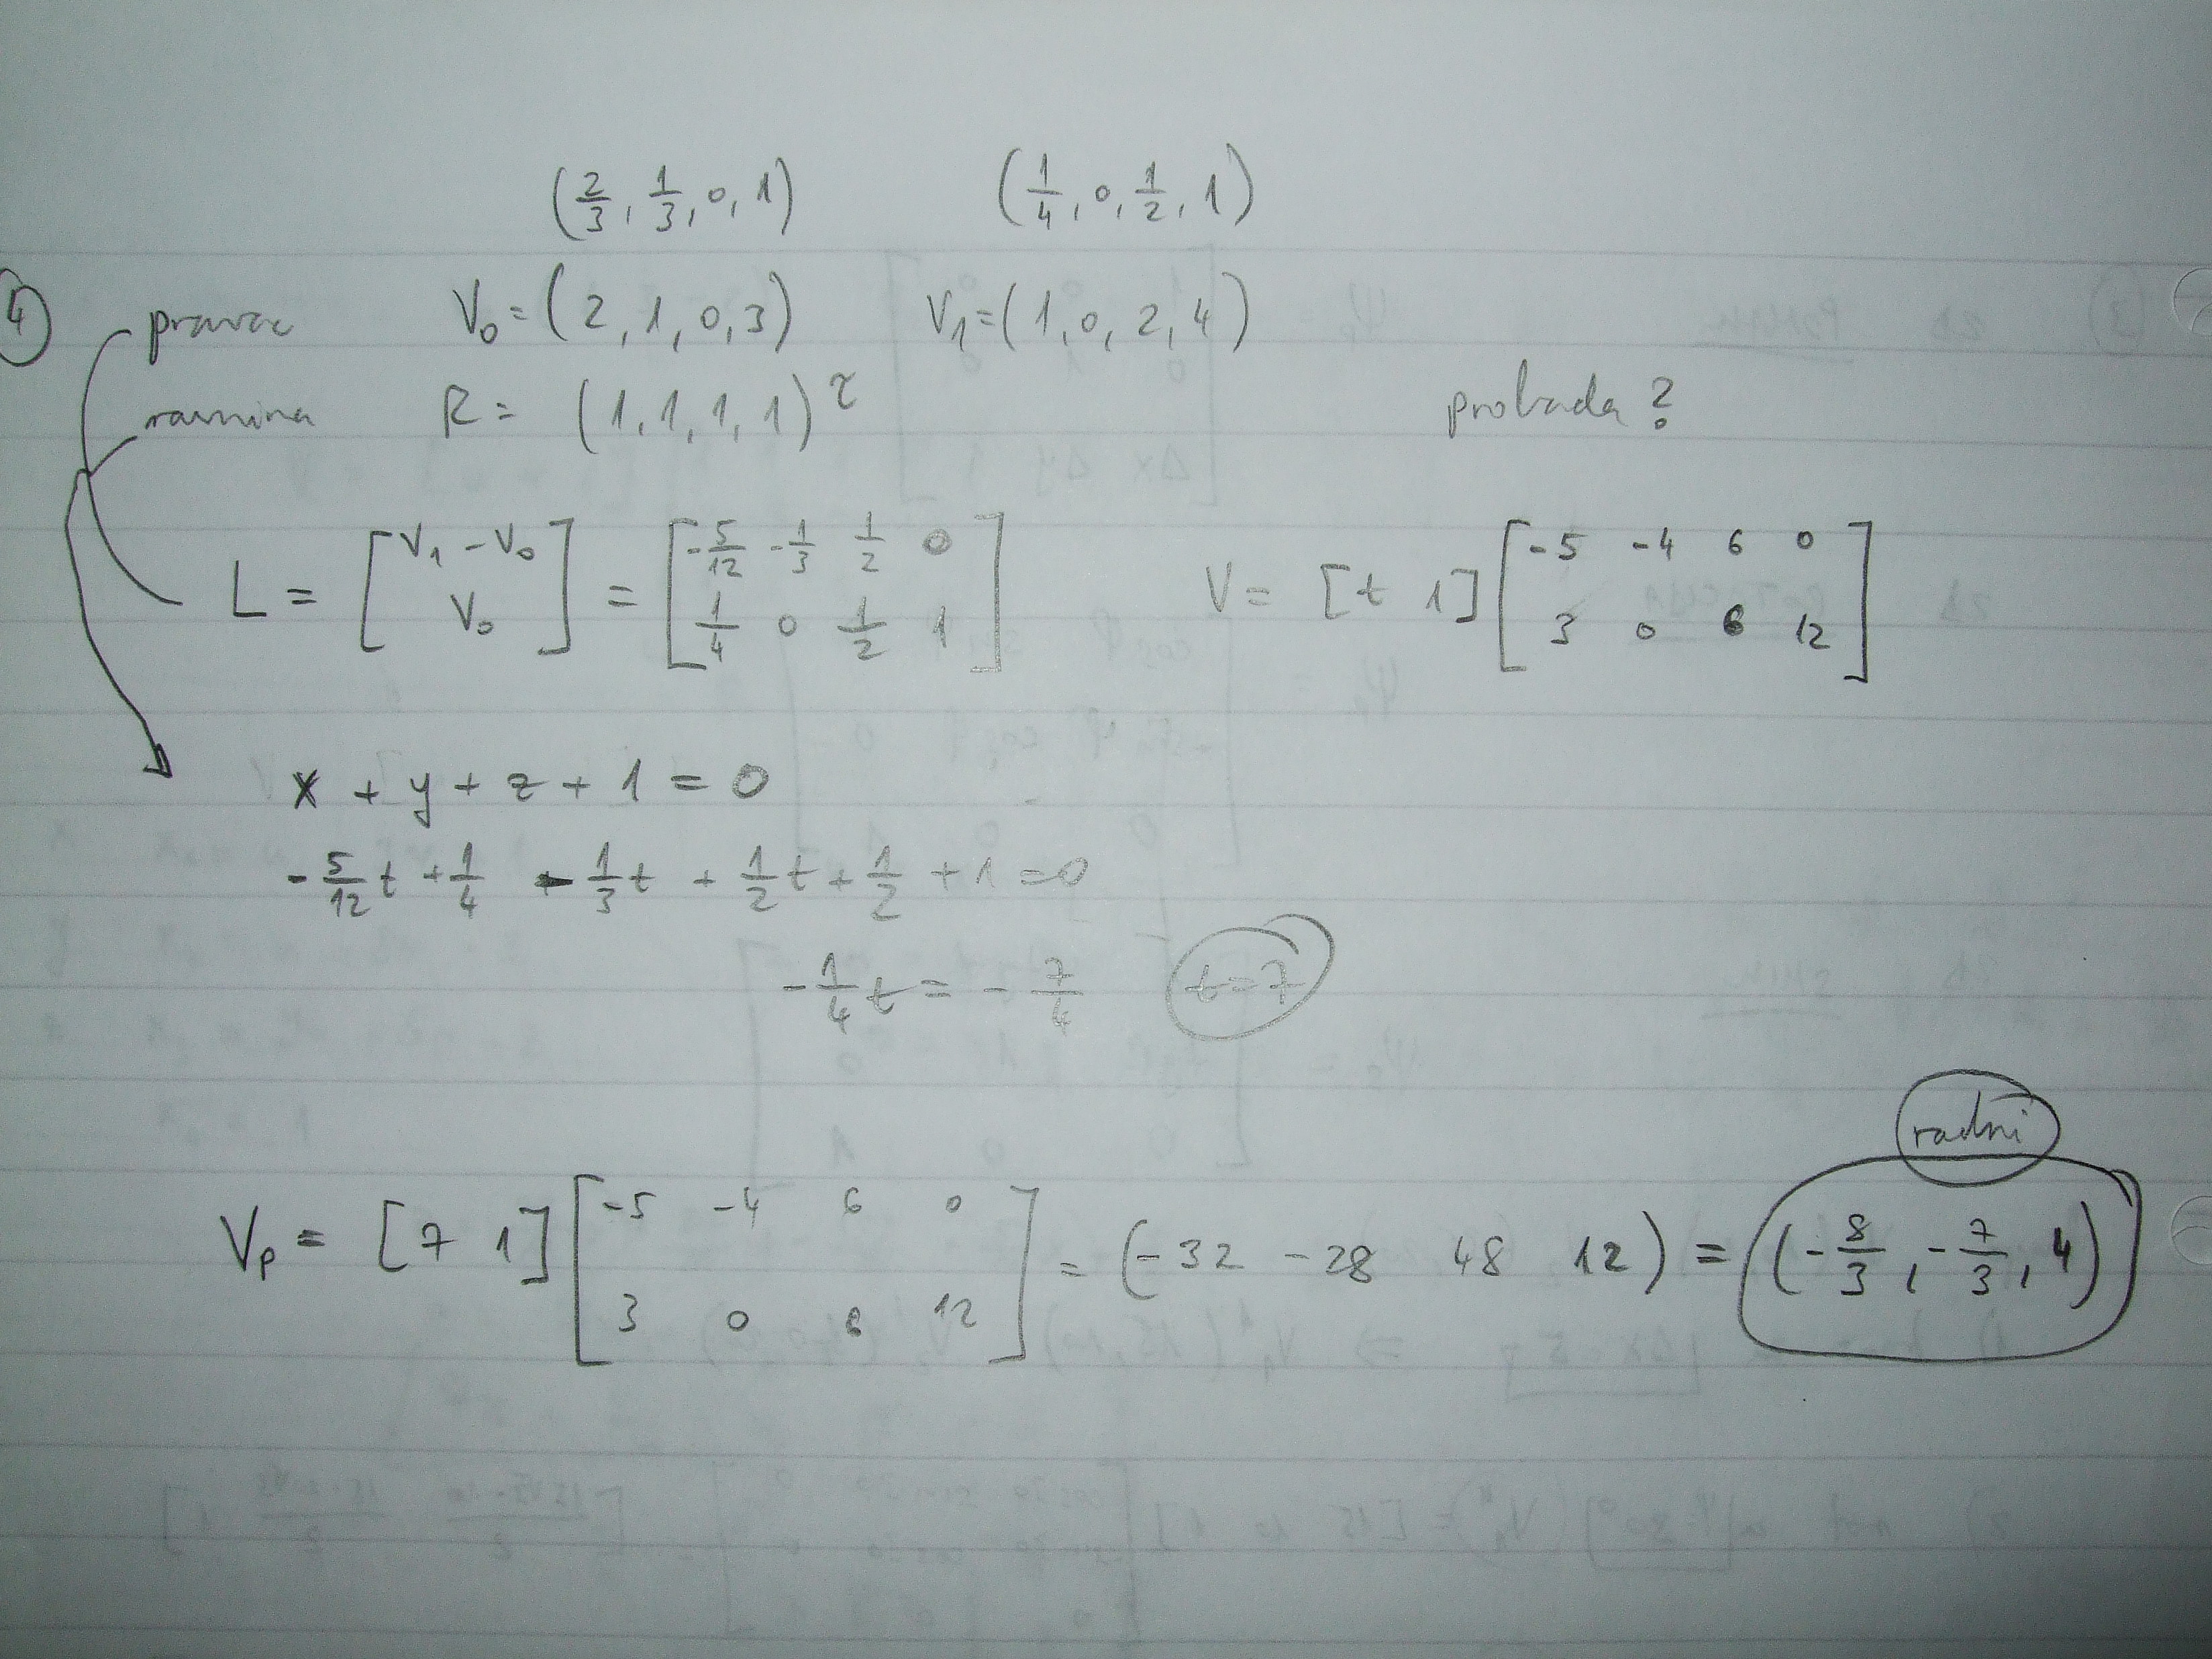 (2/3, 1/3, 0, 1) (1/4, 0, 1/2, 1)
4) pravac V₀ = (2, 1, 0, 3) V₁ = (1, 0, 2, 4)
ravnina R = (1, 1, 1, 1)^τ probada ?
L = [V₁ - V₀ ; V₀] = [-5/12 -1/3 1/2 0 ; 1/4 0 1/2 1] V = [t 1] [-5 -4 6 0 ; 3 0 6 12]
x + y + z + 1 = 0
-5/12 t + 1/4 - 1/3 t + 1/2 t + 1/2 + 1 = 0
-1/4 t = - 7/4 t = 7
radni
Vₚ = [7 1] [-5 -4 6 0 ; 3 0 6 12] = (-32 -28 48 12) = (-8/3, -7/3, 4)